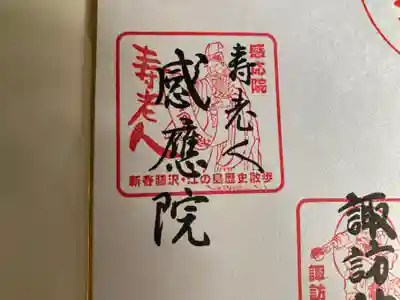 感応院
寿老人
寿老人
感應院
新春藤沢・江の島歴史散歩
諏訪
諏訪